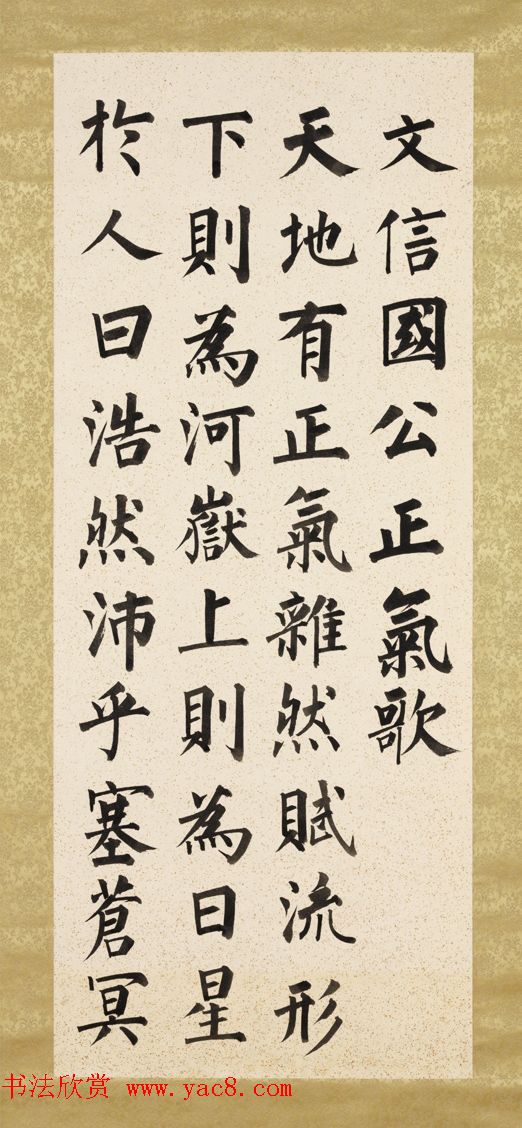 文信國公正氣歌
天地有正氣雜然賦流形
下則為河嶽上則為日星
於人曰浩然沛乎塞蒼冥
书法欣赏 www.yac8.com